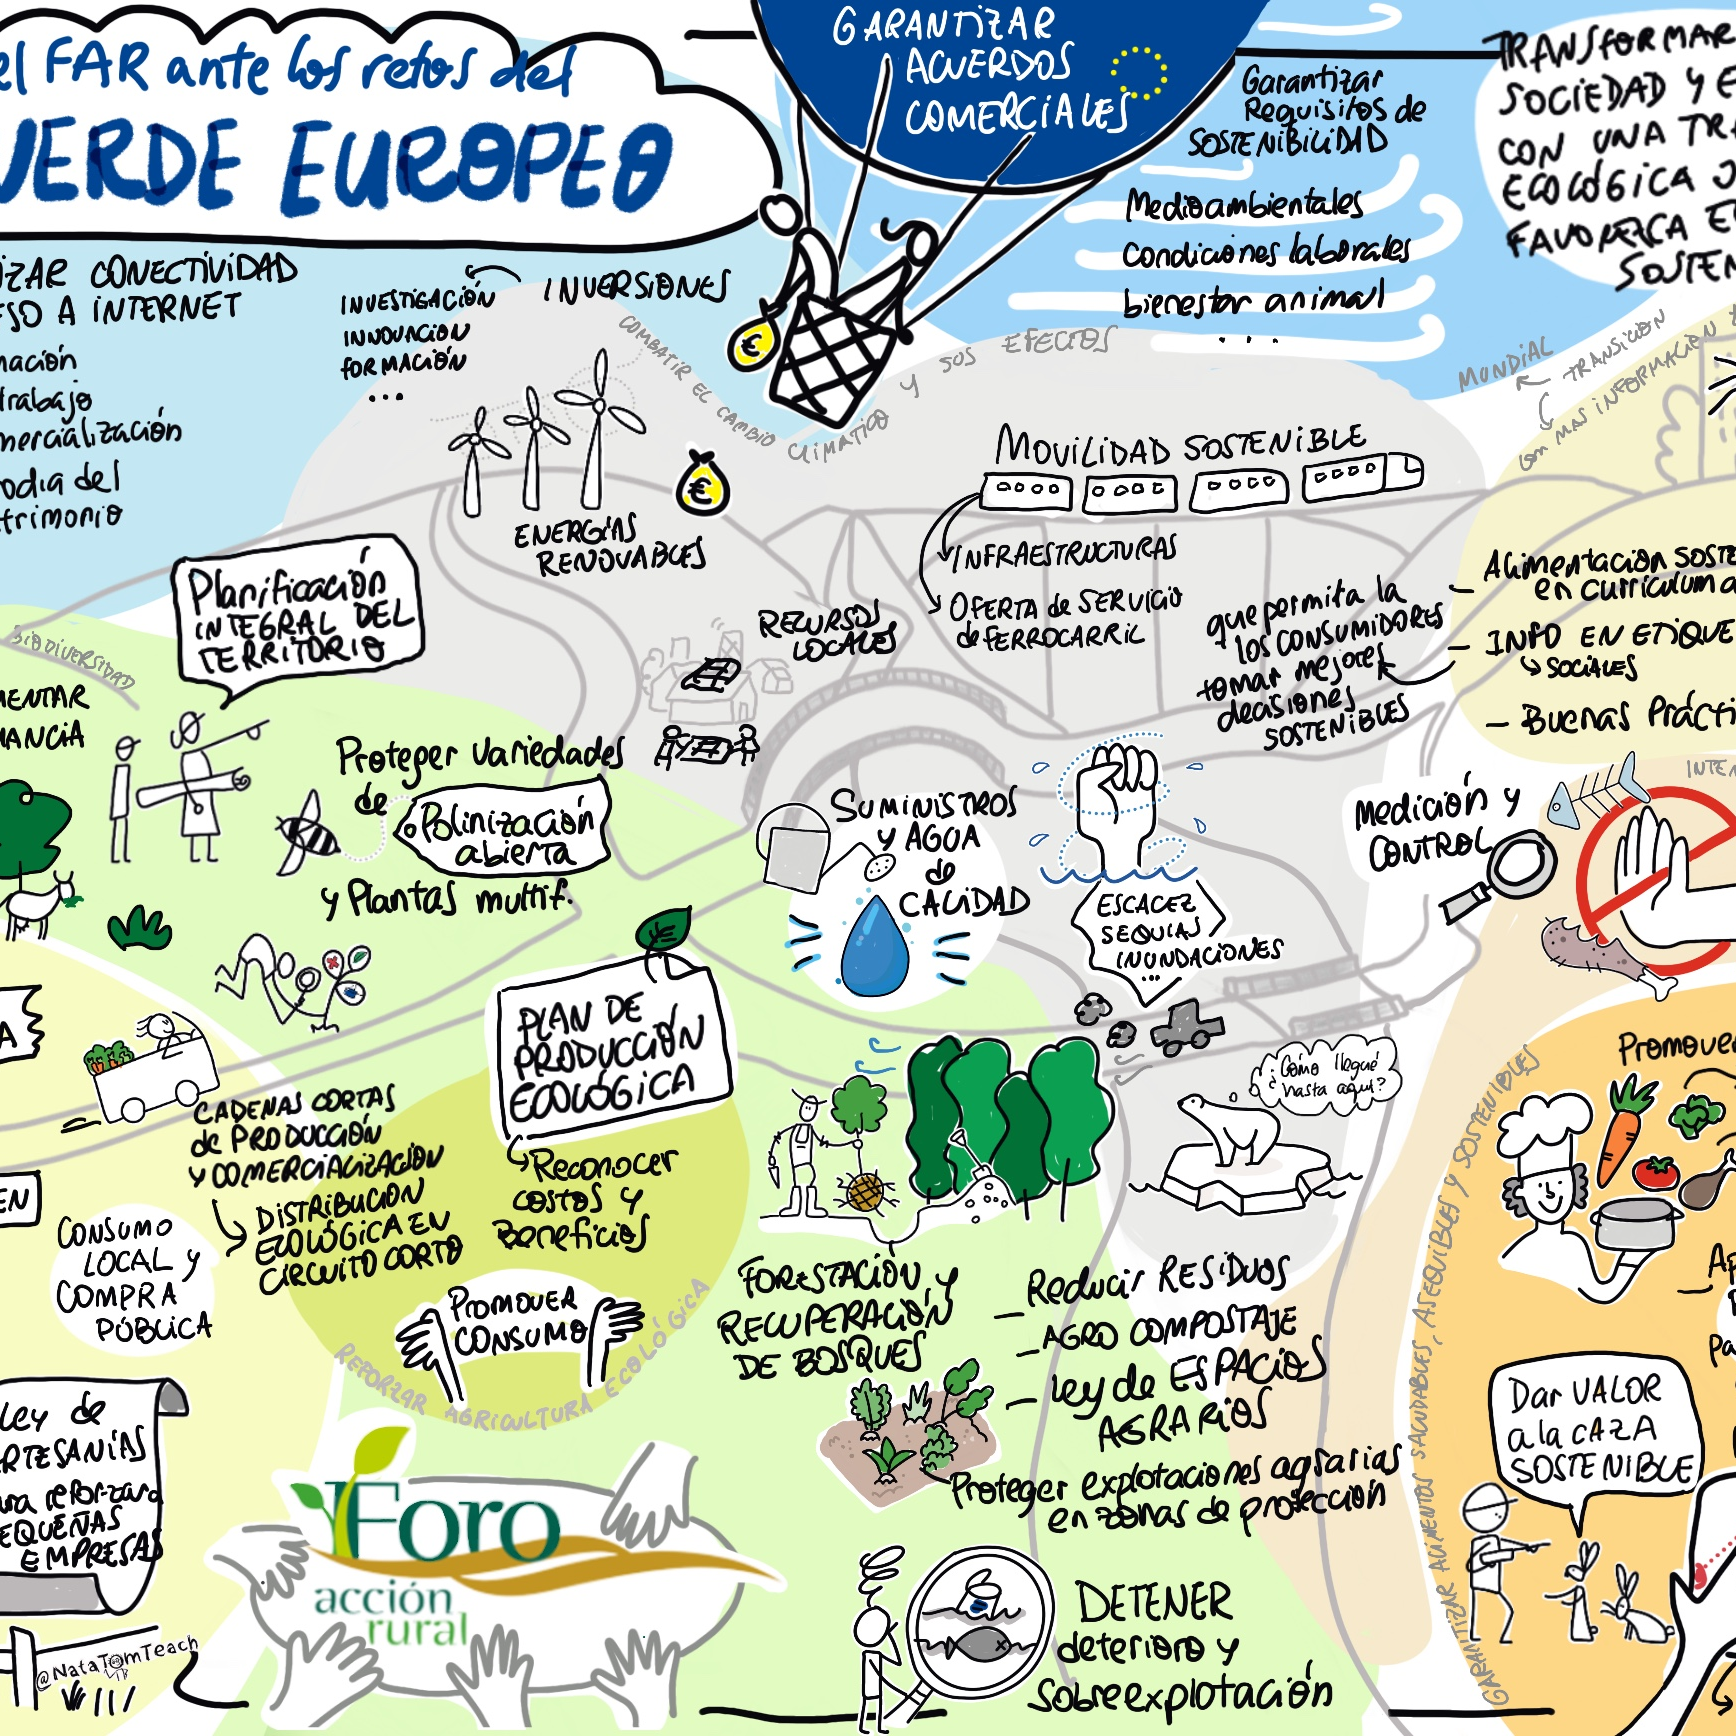 el FAR ante los retos del
VERDE EUROPEO
GARANTIZAR
ACUERDOS
COMERCIALES
Garantizar
Requisitos de
SOSTENIBILIDAD
Medioambientales
condiciones laborales
bienestar animal
...
TRANSFORMAR
SOCIEDAD Y
CON UNA
ECOLÓGICA
FAVOREZCA
CONECTIVIDAD
A INTERNET
trabajo
del
INVERSIONES
INVESTIGACIÓN
INNOVACIÓN
FORMACIÓN
...
COMBATIR EL CAMBIO CLIMÁTICO Y SUS EFECTOS
ENERGÍAS
RENOVABLES
MOVILIDAD SOSTENIBLE
INFRAESTRUCTURAS
OFERTA de SERVICIO
de FERROCARRIL
MUNDIAL
TRANSICIÓN
con MAS INFORMACIÓN
Planificación
INTEGRAL DEL
TERRITORIO
BIODIVERSIDAD
RECURSOS
LOCALES
Alimentación
en curriculum
- INFO EN
SOCIALES
- BUENAS
que permita la
los CONSUMIDORES
tomar mejores
decisiones
SOSTENIBLES
Proteger variedades
de Polinización
abierta
y Plantas multif.
SUMINISTROS
Y AGUA
de
CALIDAD
ESCACEZ
SEQUIAS
INUNDACIONES
...
Medición y
CONTROL
PLAN DE
PRODUCCIÓN
ECOLÓGICA
Reconocer
costos y
Beneficios
PROMOVER
CONSUMO
REFORZAR AGRICULTURA ECOLÓGICA
CADENAS CORTAS
de PRODUCCIÓN
Y COMERCIALIZACIÓN
DISTRIBUCIÓN
ECOLÓGICA EN
CIRCUITO CORTO
CONSUMO
LOCAL y
COMPRA
PÚBLICA
¿Cómo llegué
hasta aquí?
FORESTACIÓN y
RECUPERACIÓN
DE BOSQUES
- Reducir RESIDUOS
- AGRO COMPOSTAJE
- Ley de ESPACIOS
AGRARIOS
Proteger explotaciones agrarias
en zonas de protección
GARANTIZAR ALIMENTOS SALUDABLES, ASEQUIBLES Y SOSTENIBLES
Dar VALOR
a la CAZA
SOSTENIBLE
Ley de
reforzar
EMPRESAS
@NataTomTeach
Foro
acción
rural
DETENER
deterioro y
Sobreexplotación